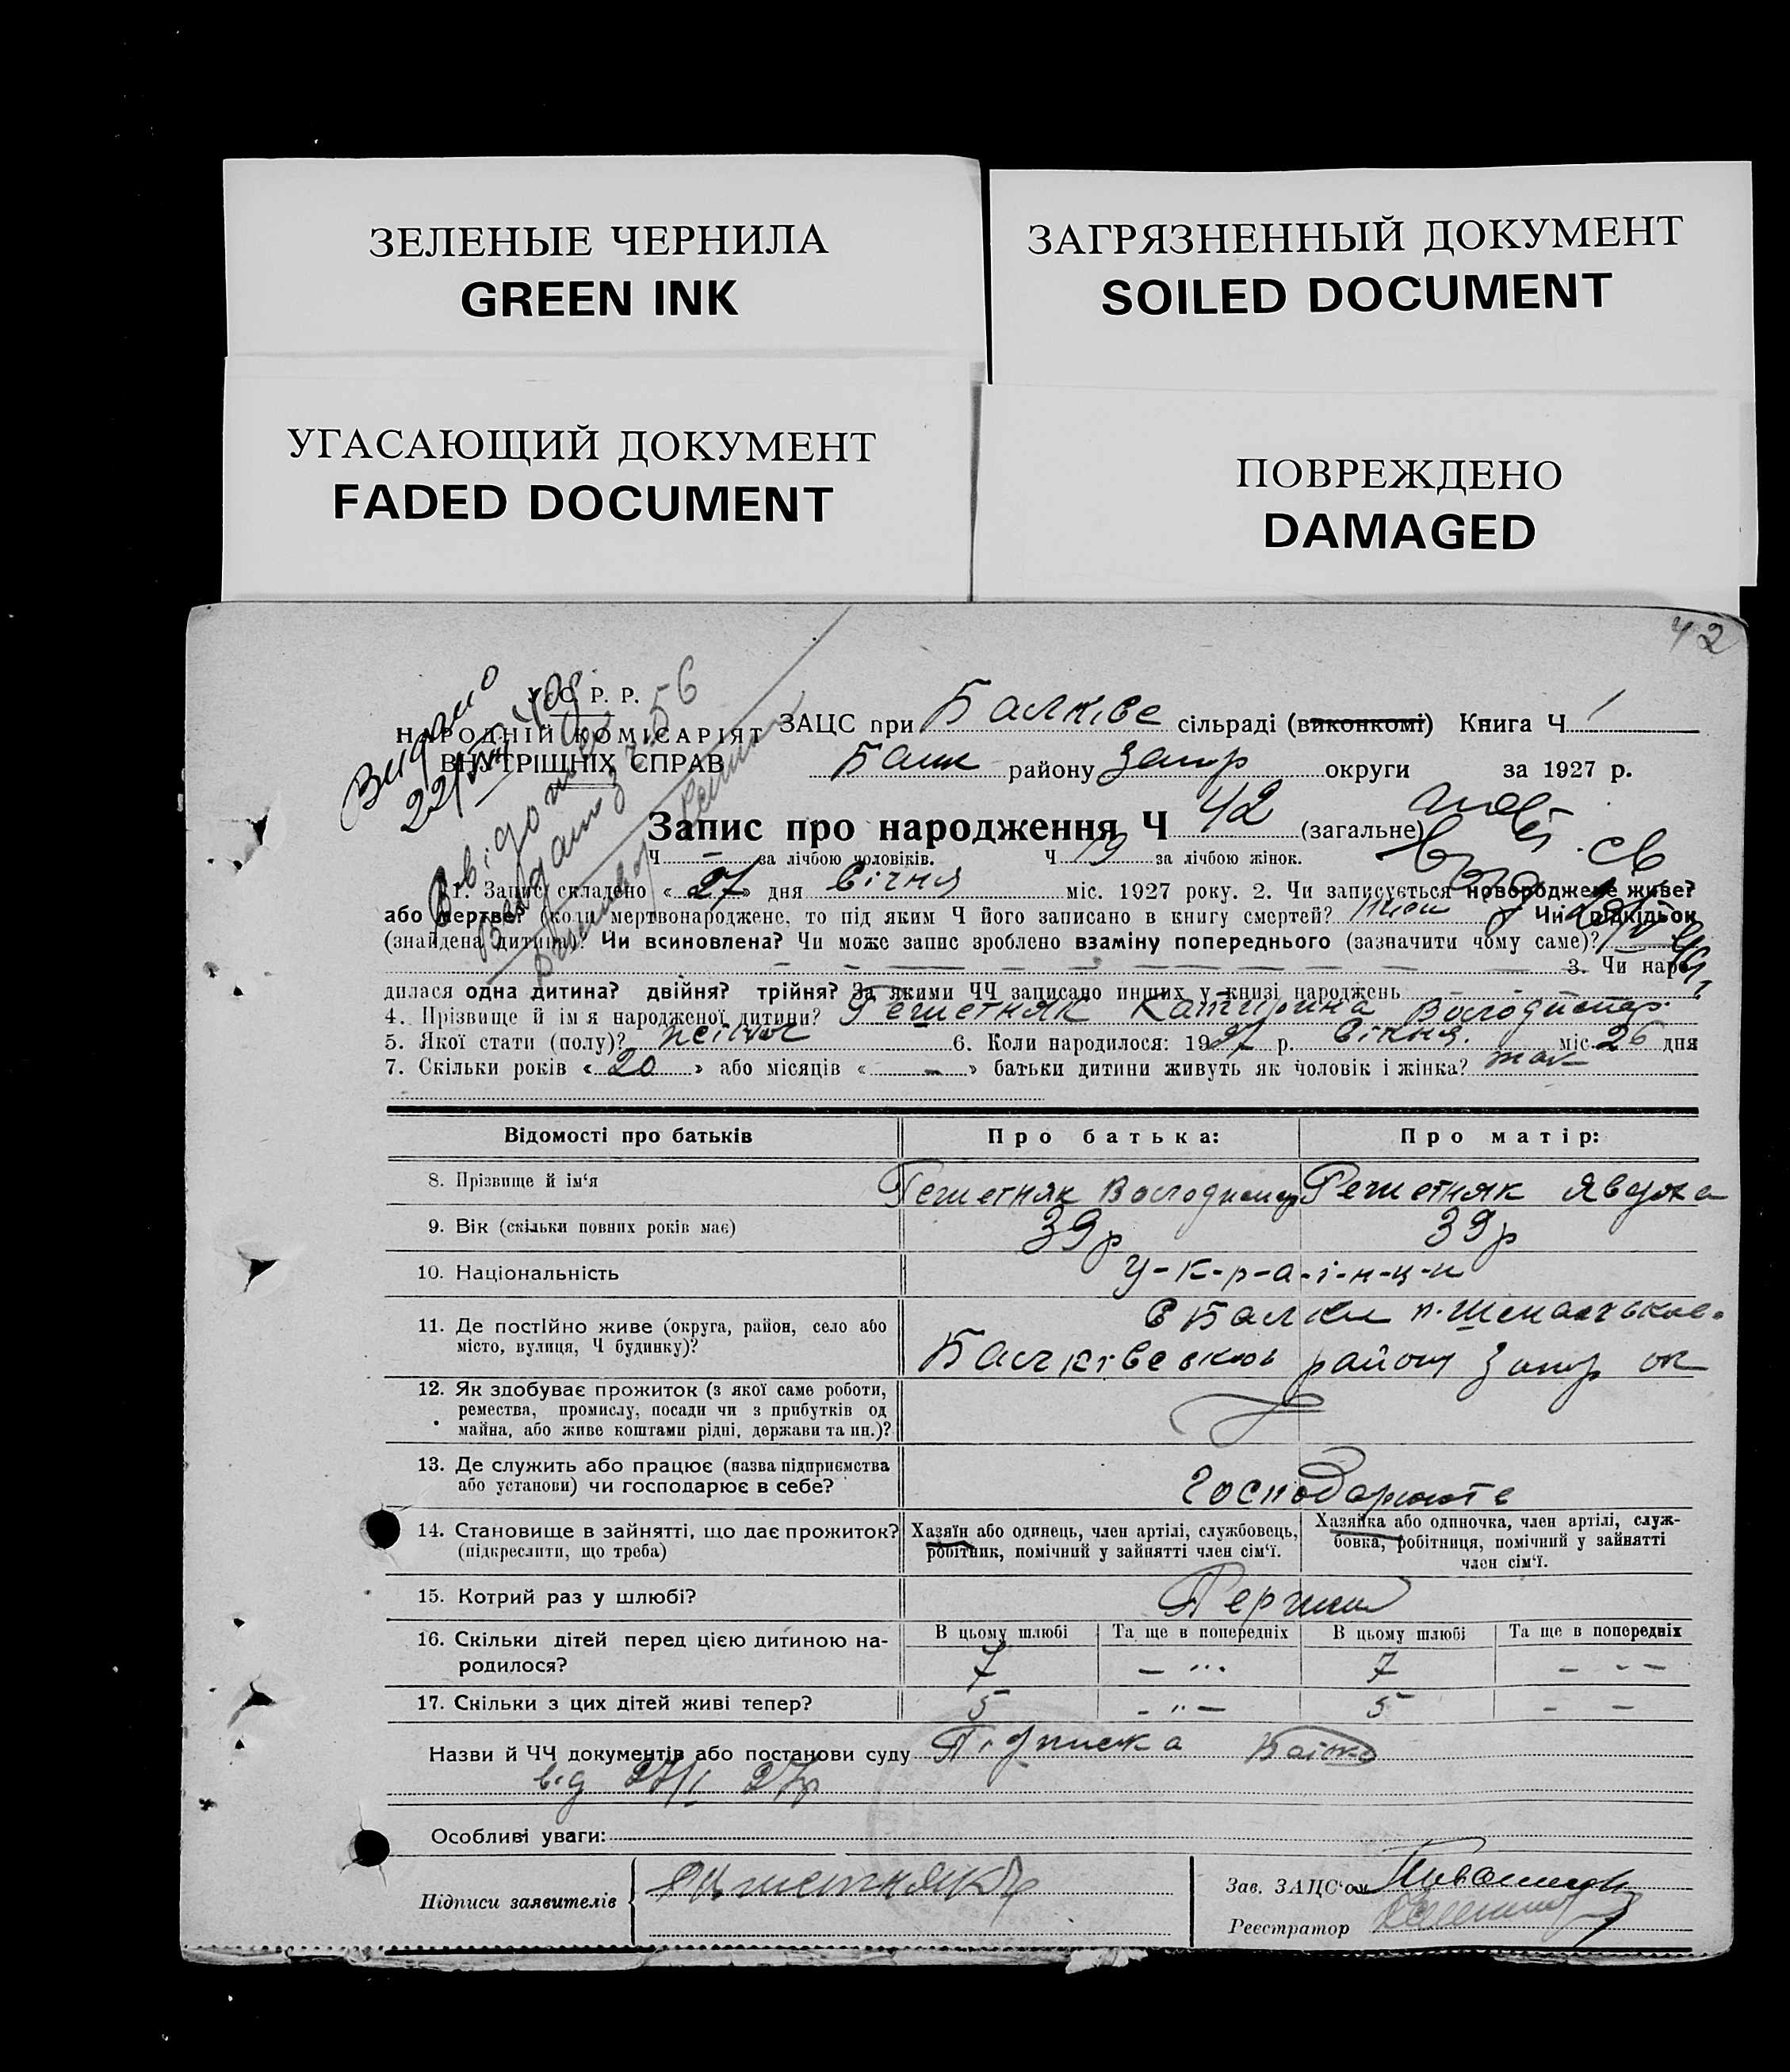 ЗЕЛЕНЫЕ ЧЕРНИЛА
GREEN INK
ЗАГРЯЗНЕННЫЙ ДОКУМЕНТ
SOILED DOCUMENT
УГАСАЮЩИЙ ДОКУМЕНТ
FADED DOCUMENT
ПОВРЕЖДЕНО
DAMAGED
42
У. С. Р. Р.
НАРОДНІЙ КОМІСАРІЯТ
ВНУТРІШНІХ СПРАВ
Видано
ЗАЦС при Балківс сільраді (виконкомі) Книга Ч 1
Балк району Запор округи за 1927 р.
Запис про народження Ч 42 (загальне)
Ч — за лічбою чоловіків. Ч 19 за лічбою жінок.
1. Запис складено « 27 » дня Січня міс. 1927 року. 2. Чи записується новороджене живе?
або мертве? (коли мертвонароджене, то під яким Ч його записано в книгу смертей? Чи підкідьок
(знайдена дитина)? Чи всиновлена? Чи може запис зроблено взаміну попереднього (зазначити чому саме)?
3. Чи наро-
дилася одна дитина? двійня? трійня? За якими ЧЧ записано инших у книзі народжень
4. Прізвище й ім'я народженої дитини? Решетняк Катирина Володимир.
5. Якої стати (полу)? жіноч 6. Коли народилося: 1927 р. Січня. міс. 26 дня
7. Скільки років « 20 » або місяців « — » батьки дитини живуть як чоловік і жінка? так
Відомості про батьків Про батька: Про матір:
8. Прізвище й ім'я Решетняк Володимир Решетняк Явдоха
9. Вік (скільки повних років має) 39р 39р
10. Національність У-к-р-а-ї-н-ц-и
11. Де постійно живе (округа, район, село або С Балки
місто, вулиця, Ч будинку)? Балківського району Запор ок
12. Як здобуває прожиток (з якої саме роботи,
ремества, промислу, посади чи з прибутків од
майна, або живе коштами рідні, держави та ин.)?
13. Де служить або працює (назва підприємства
або установи) чи господарює в себе? Господарюють
14. Становище в зайнятті, що дає прожиток? Хазяїн або одинець, член артілі, службовець, Хазяйка або одиночка, член артілі, служ-
(підкреслити, що треба) робітник, помічний у зайнятті член сім'ї. бовка, робітниця, помічний у зайнятті
член сім'ї.
15. Котрий раз у шлюбі? Перший
16. Скільки дітей перед цією дитиною на- В цьому шлюбі Та ще в попередніх В цьому шлюбі Та ще в попередніх
родилося? 7 — 7 —
17. Скільки з цих дітей живі тепер? 5 — 5 —
Назви й ЧЧ документів або постанови суду Підписка
від 27/I 27р
Особливі уваги:
Підписи заявителів
Зав. ЗАЦС'ом
Реєстратор